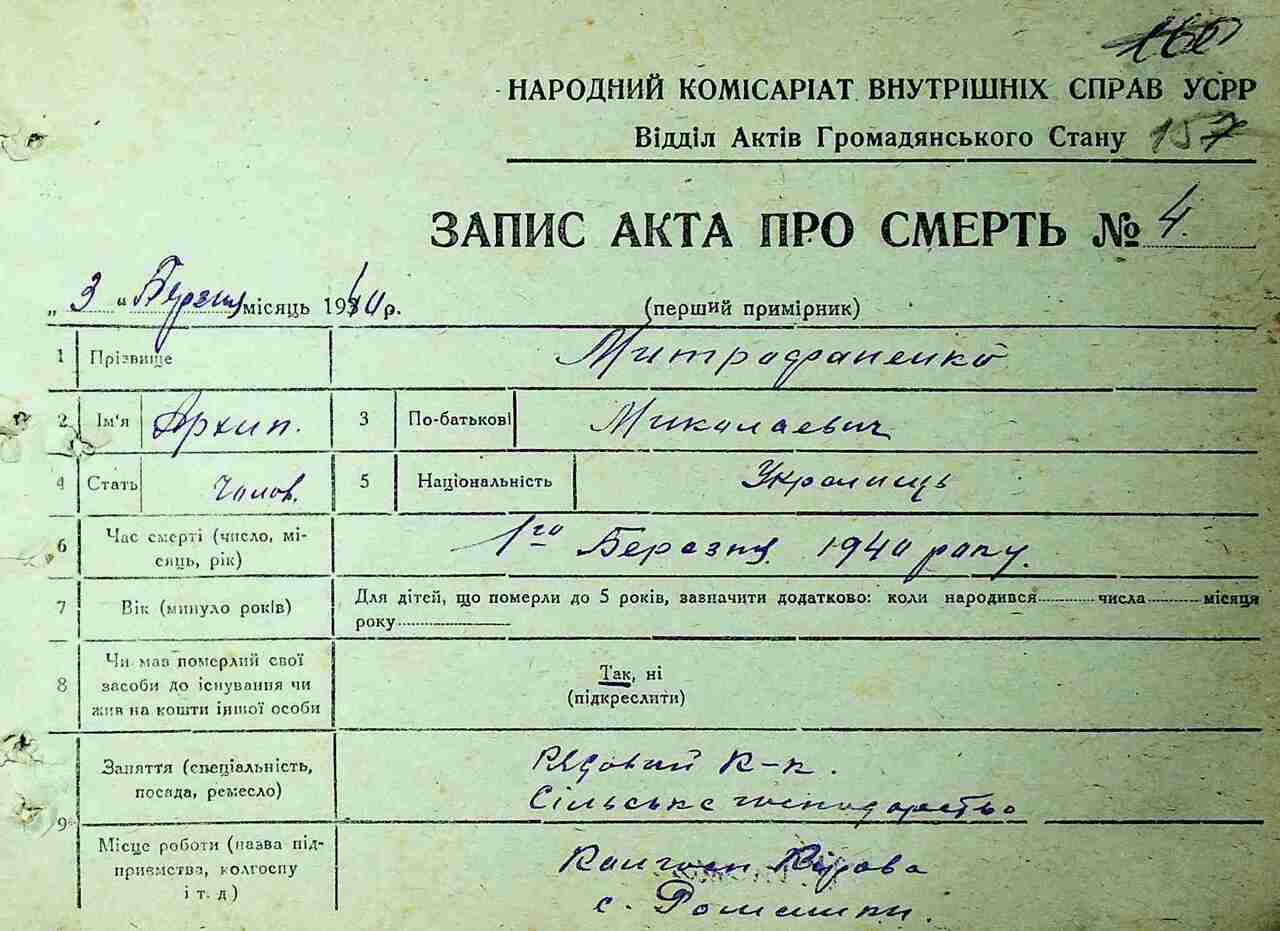 166
НАРОДНИЙ КОМІСАРІАТ ВНУТРІШНІХ СПРАВ УСРР
Відділ Актів Громадянського Стану 157
ЗАПИС АКТА ПРО СМЕРТЬ № 4
„ 3 “ Березня місяць 1940 р. (перший примірник)
1 Прізвище Митрофаненко
2 Ім'я Архип. 3 По-батькові Миколаевич
4 Стать Чолов. 5 Національність Українець
6 Час смерті (число, мі-
сяць, рік) 1го Березня 1940 року.
7 Вік (минуло років) Для дітей, що померли до 5 років, зазначити додатково: коли народився числа місяця
року
8 Чи мав померлий свої
засоби до існування чи
жив на кошти іншої особи
Так, ні
(підкреслити)
9 Заняття (спеціальність,
посада, ремесло)
Рядовий К-к.
Сільське господарство
Місце роботи (назва під-
приємства, колгоспу
і т. д)
Колгосп Кірова
с. Ромашки.